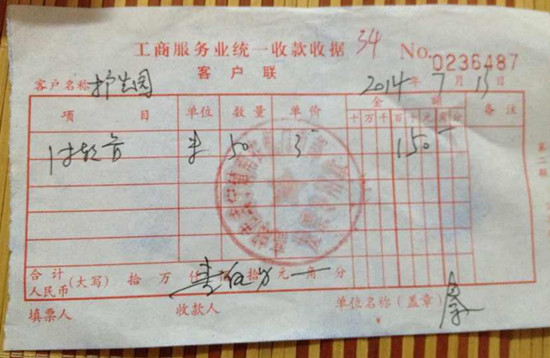 工商服务业统一收款收据 34 No.0236487
客户联
客户名称 2014年7月15日
项目 单位 数量 单价 金额 备注
十万千百十元角分
米 50 3 150
第二联
合计人民币(大写) 拾万仟佰拾元角分
填票人 收款人 单位名称(盖章)